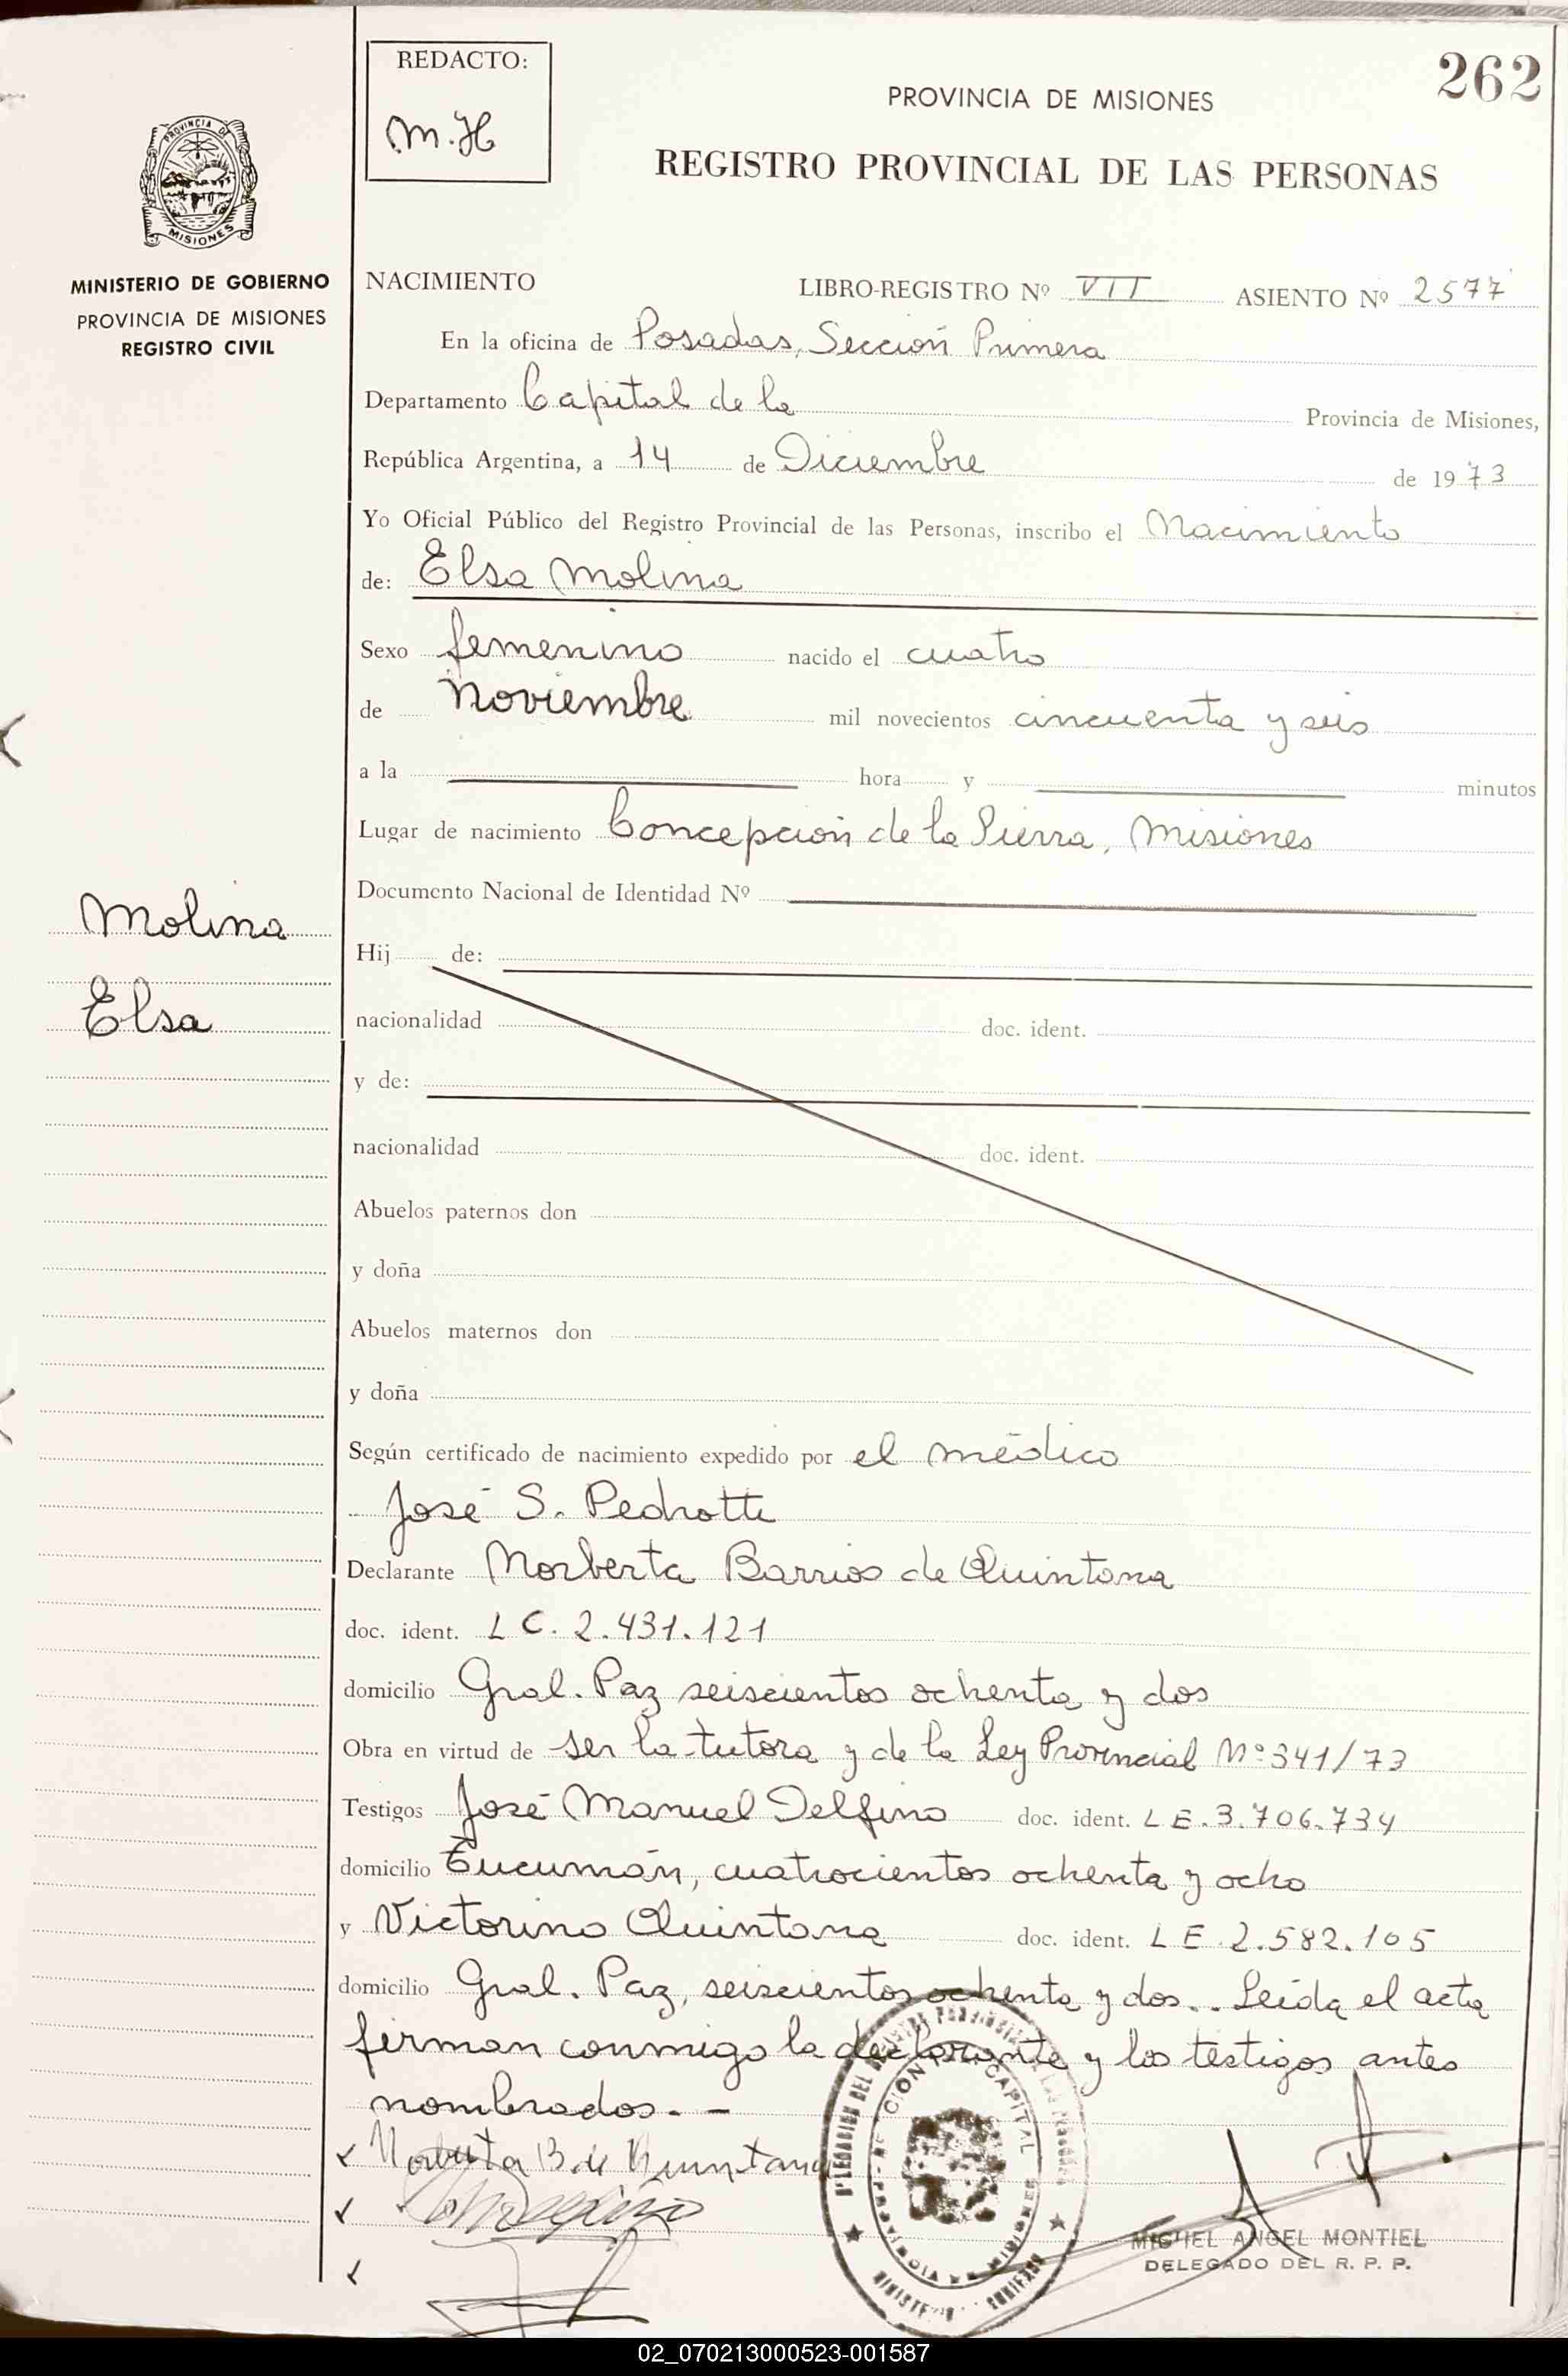 262
REDACTO:
M.H
PROVINCIA DE MISIONES
REGISTRO PROVINCIAL DE LAS PERSONAS
PROVINCIA DE
MISIONES
MINISTERIO DE GOBIERNO
PROVINCIA DE MISIONES
REGISTRO CIVIL
NACIMIENTO LIBRO-REGISTRO Nº VII ASIENTO Nº 2577
En la oficina de Posadas, Sección Primera
Departamento Capital de la Provincia de Misiones,
República Argentina, a 14 de Diciembre de 1973
Yo Oficial Público del Registro Provincial de las Personas, inscribo el Nacimiento
de: Elsa Molina
Sexo femenino nacido el cuatro
de noviembre mil novecientos cincuenta y seis
a la hora y minutos
Lugar de nacimiento Concepción de la Sierra, Misiones
Documento Nacional de Identidad Nº
Molina
Elsa
Hij de:
nacionalidad doc. ident.
y de:
nacionalidad doc. ident.
Abuelos paternos don
y doña
Abuelos maternos don
y doña
Según certificado de nacimiento expedido por el médico
José S. Pedrotti
Declarante Norberta Barrios de Quintana
doc. ident. L C. 2.431.121
domicilio Gral. Paz seiscientos ochenta y dos
Obra en virtud de ser la tutora y de la Ley Provincial Nº 341/73
Testigos José Manuel Delfino doc. ident. L E. 3.706.734
domicilio Tucumán, cuatrocientos ochenta y ocho
y Victorino Quintana doc. ident. L E 2.582.105
domicilio Gral. Paz, seiscientos ochenta y dos.. Leída el acta
firman conmigo la declarante y los testigos antes
nombrados. -
Norberta B de Quintana
MIGUEL ANGEL MONTIEL
DELEGADO DEL R. P. P.
02_070213000523-001587